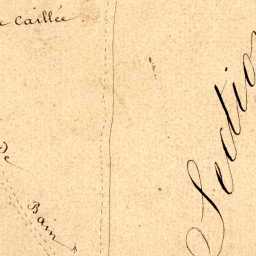 e Caillée
Sectio
de
Bain